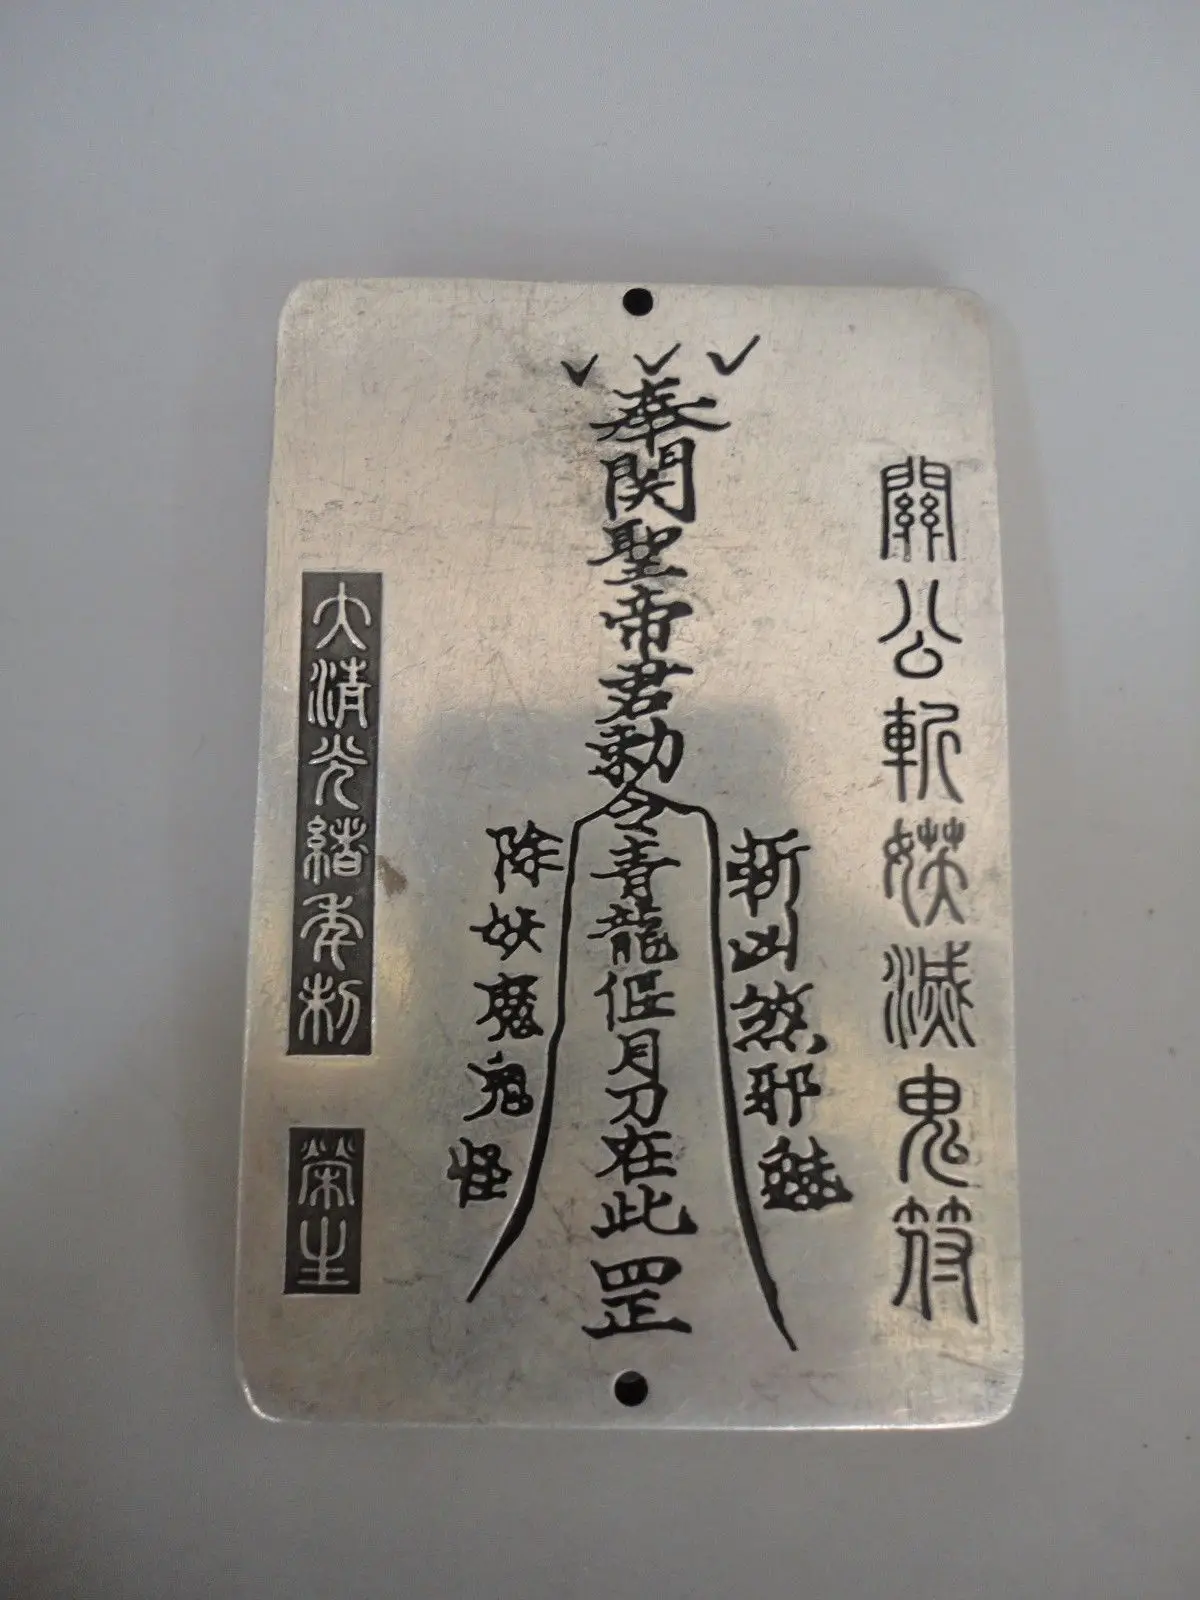 關公斬媄滅鬼符
奉関聖帝君勅令青龍偃月刀在此罡
斬凶煞邪魅
除妖魔鬼怪
大清光緒年制
榮生